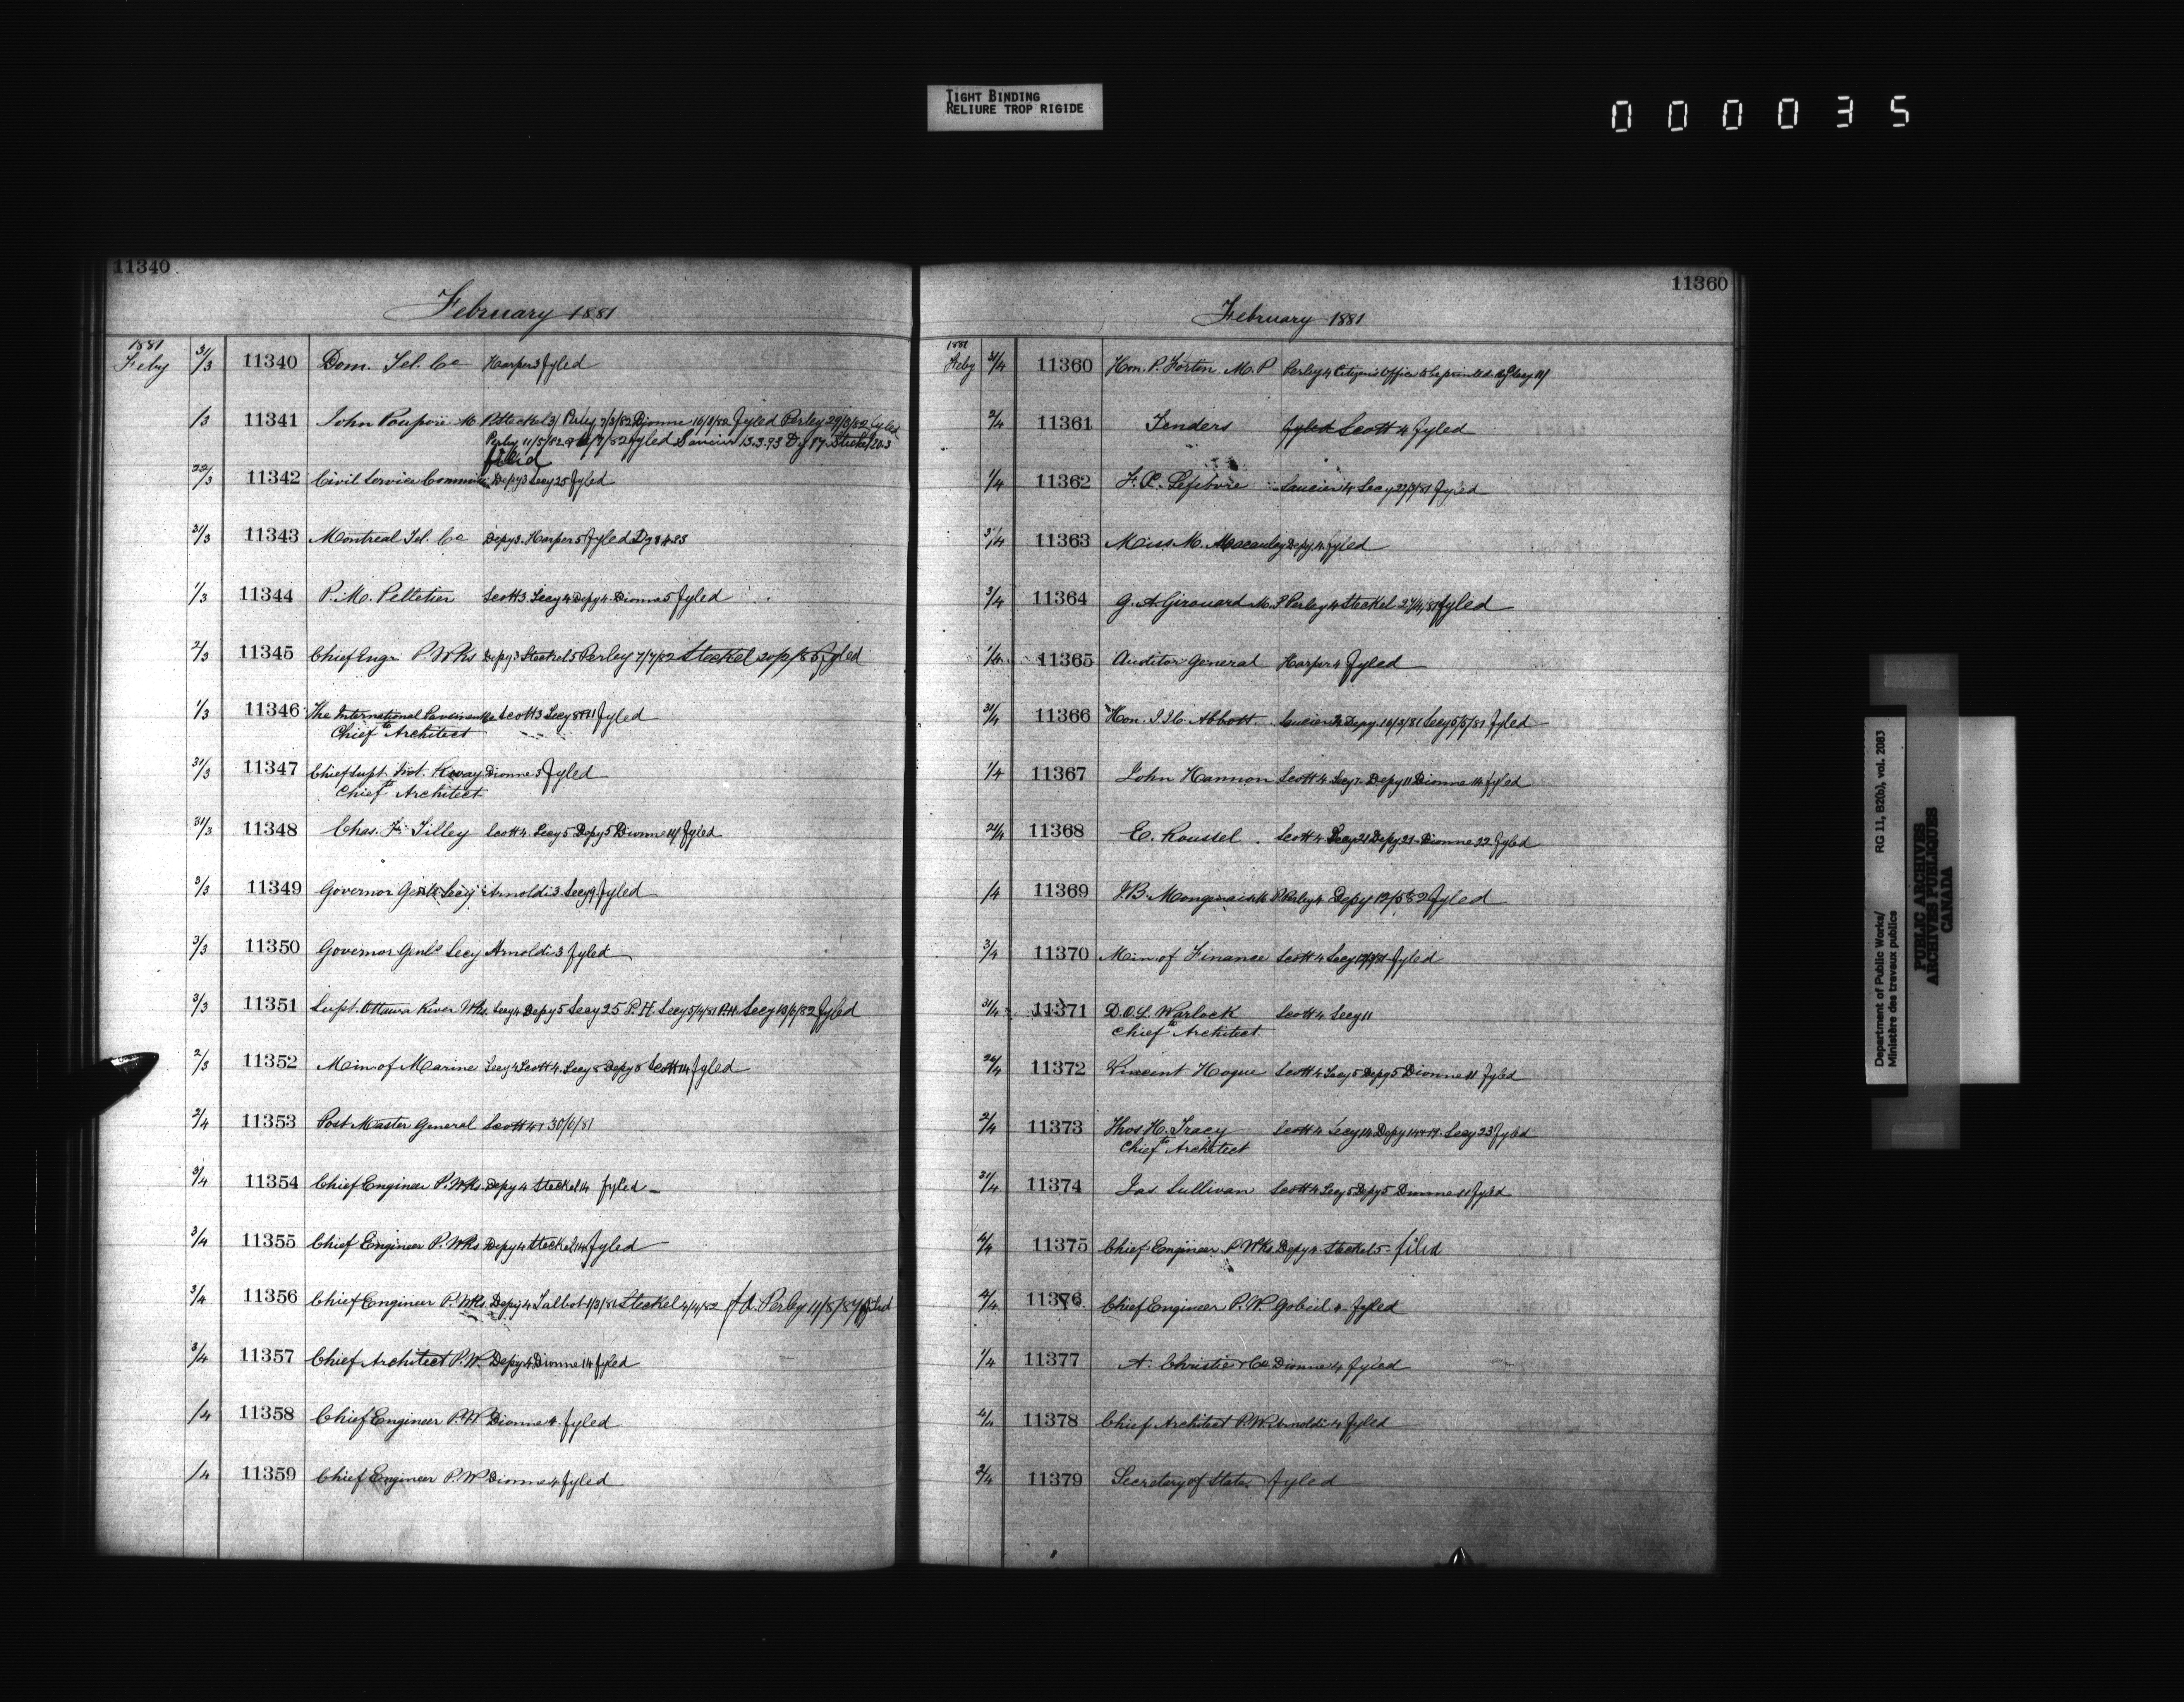 TIGHT BINDING
RELIURE TROP RIGIDE
000035
11340
February 1881
1881
Feby 31/3 11340 Dom. Tel. Co Harper 3 fyled
/3 11341 John Poupore M.P. Steckel 3/ Perley 7/3/82 Dionne 16/3/82 fyled Perley 29/3/82 fyled
Perley 11/5/82 /7/82 fyled Saucier 13.3.93 Dy 17 Steckel 20.3
filed
22/3 11342 Civil Service Commis Depy 3 Secy 25 fyled
31/3 11343 Montreal Tel. Co Depy 3. Harper 5 fyled
1/3 11344 P. M. Pelletier Scott 3 Secy 4 Depy 4 Dionne 5 fyled
2/3 11345 Chief Engr P. Wks Depy 3 Steckel 5 Perley 7/7/82 Steckel fyled
1/3 11346 The International Scott 3 Secy fyled
Chief Architect
31/3 11347 Chief Supt Rway Dionne 3 fyled
Chief Architect
31/3 11348 Chas. F. Tilley Scott 4. Secy 5 Depy 5 Dionne 11/ fyled
3/3 11349 Governor Genls Secy Arnoldi 3 Secy 9 fyled
3/3 11350 Governor Genls Secy Arnoldi 3 fyled
3/3 11351 Supt. Ottawa River Wks. Secy 4 Depy 5 Secy 25 P.H. Secy 5/4/81 P.H. Secy 13/6/82 fyled
2/3 11352 Min of Marine Secy 4 Scott 4. Secy 8 Depy 8 Scott 14 fyled
2/4 11353 Post Master General Scott 4 30/6/81
3/4 11354 Chief Engineer P. Wks. Depy 4 Steckel 14 fyled
3/4 11355 Chief Engineer P. Wks Depy 4 Steckel 14 fyled
3/4 11356 Chief Engineer P. Wks. Depy 4 Talbot 1/3/82 Steckel 4/4/82 Perley 11/8/87 filed
3/4 11357 Chief Architect P.W. Depy 4 Dionne 14 fyled
/4 11358 Chief Engineer P.W Dionne 4. fyled
/4 11359 Chief Engineer P.W Dionne 4 fyled
11360
February 1881
1881
Feby 31/4 11360 Hon. P. Fortin M.P Perley 4
2/4 11361 Tenders fyled Scott 4 fyled
1/4 11362 F. X. Lefebvre Saucier 4 Secy fyled
31/4 11363 Miss M. Macaulay Depy 4 fyled
3/4 11364 G. A Girouard M.P Perley 4 Steckel 27/4/81 fyled
1/4 11365 Auditor General Harper 4 fyled
31/4 11366 Hon. J.J.C. Abbott Saucier Depy. 10/3/81 Secy 5/5/81 fyled
1/4 11367 John Hannon Scott 4 Secy 7 Depy 11 Dionne 14 fyled
11368 E. Roussel Scott 4 Secy 21 Depy 21 Dionne 22 fyled
/4 11369 Perley 4 Depy 12/5/82 fyled
3/4 11370 Min of Finance Scott 4 Secy fyled
31/4 11371 D. O. L. Warlock Scott 4 Secy 11
Chief Architect
11372 Vincent Hogue Scott 4 Secy 5 Depy 5 Dionne 11 fyled
2/4 11373 Thos H. Tracy Scott 4 Secy 14 Depy 14 + 17. Secy 23 fyled
Chief Architect
31/4 11374 Jas Sullivan Scott 4 Secy 5 Depy 5 Dionne 11 fyled
4/4 11375 Chief Engineer P Wks Depy 4 Steckel 5 filed
4/4 11376 Chief Engineer P.W. Gobeil 4. fyled
1/4 11377 A. Christie & Co Dionne 4 fyled
4/4 11378 Chief Architect P.W. Arnoldi 4 fyled
2/4 11379 Secretary of State fyled
Department of Public Works/ RG 11, B2(b), vol. 2083
Ministère des travaux publics
PUBLIC ARCHIVES
ARCHIVES PUBLIQUES
CANADA